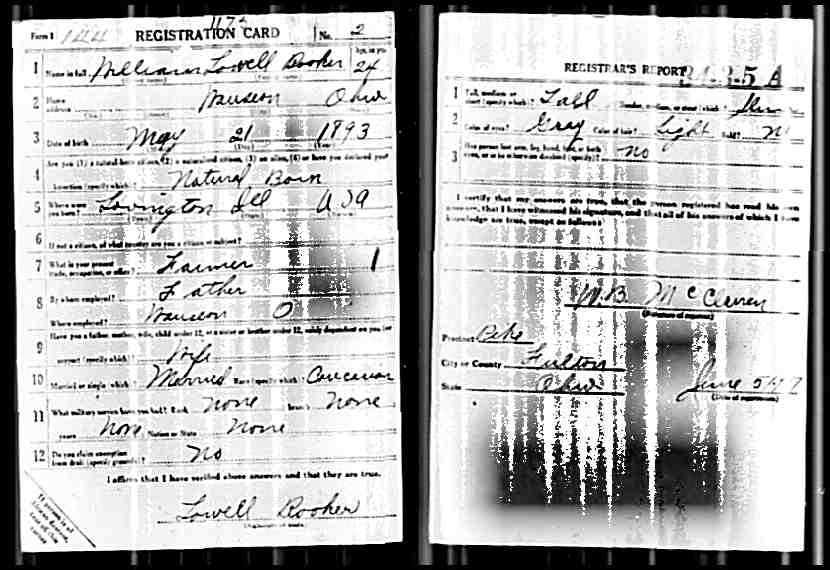 1172
Form 1 144 REGISTRATION CARD No. 2
1 Name in full William Lowell Rooker Age, in yrs. 24
2 Home address Wauseon Ohio
3 Date of birth May 21 1893
(Month) (Day) (Year)
4 Are you (1) a natural-born citizen, (2) a naturalized citizen, (3) an alien, (4) or have you declared your
intention (specify which)? Natural Born
5 Where were you born? Lovington Ill USA
6 If not a citizen, of what country are you a citizen or subject?
7 What is your present trade, occupation, or office? Farmer 1
8 By whom employed? Father
Where employed? Wauseon O
9 Have you a father, mother, wife, child under 12, or a sister or brother under 12, solely dependent on you for
support (specify which)? Wife
10 Married or single (which)? Married Race (specify which)? Caucasian
11 What military service have you had? Rank none branch none
years none Nation or State none
12 Do you claim exemption from draft (specify grounds)? No
I affirm that I have verified above answers and that they are true.
Lowell Rooker
REGISTRAR'S REPORT 34-3-5 A
1 Tall, medium, or short (specify which)? Tall Slender, medium, or stout (which)?
2 Color of eyes? Gray Color of hair? Light Bald? No
3 Has person lost arm, leg, hand, foot, or both eyes, or is he otherwise disabled (specify)? no
I certify that my answers are true, that the person registered has read his own
answers, that I have witnessed his signature, and that all of his answers of which I have
knowledge are true, except as follows:
W.B. McClaren
(Signature of registrar)
Precinct Pike
City or County Fulton
State Ohio June 5 1917
(Date of registration)